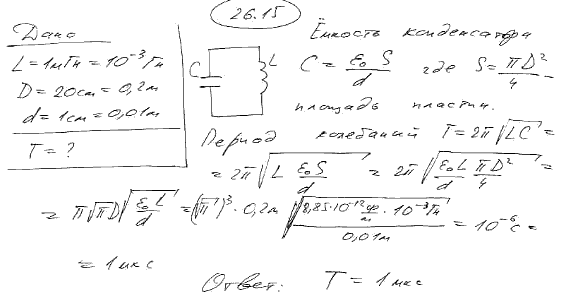 26.15
Дано
L = 1мГн = 10⁻³ Гн
D = 20см = 0,2м
d = 1см = 0,01м
T = ?
C L
Ёмкость конденсатора
C = ε₀ S / d где S = πD² / 4 -
площадь пластин.
Период колебаний T = 2π√(LC) =
= 2π√(L ε₀S / d) = 2π√(ε₀L / d · πD² / 4) =
= π√π D√(ε₀L / d) = (√π)³ · 0,2м √(8,85·10⁻¹² ф/м · 10⁻³Гн / 0,01м) = 10⁻⁶ с =
= 1 мкс
Ответ: T = 1 мкс